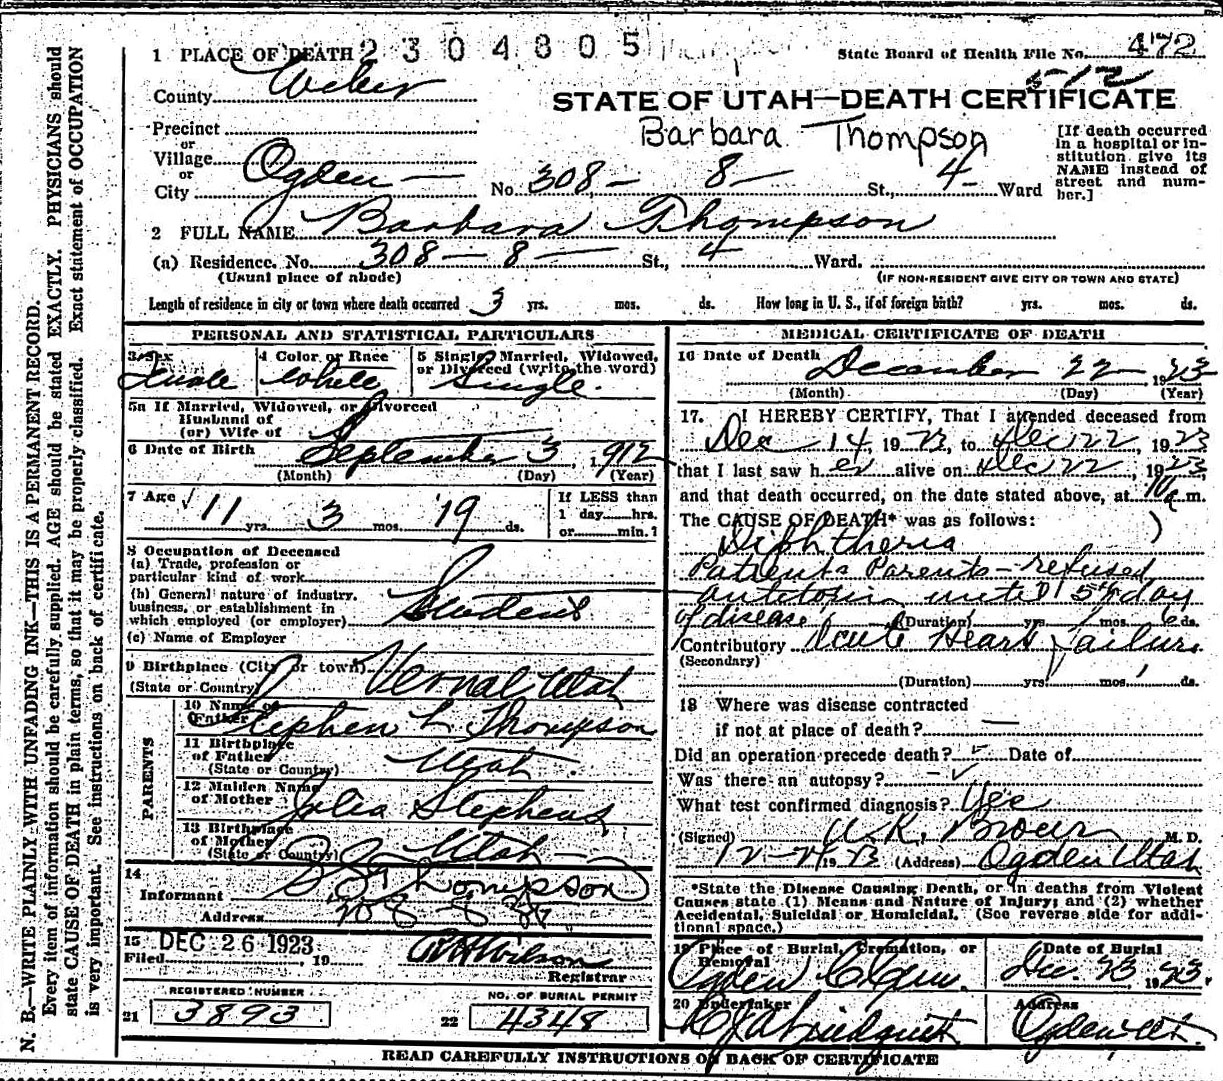 N. B.—WRITE PLAINLY WITH UNFADING INK—THIS IS A PERMANENT RECORD.
Every item of information should be carefully supplied. AGE should be stated EXACTLY. PHYSICIANS should
state CAUSE OF DEATH in plain terms, so that it may be properly classified. Exact statement of OCCUPATION
is very important. See instructions on back of certificate.
1 PLACE OF DEATH 2304805
State Board of Health File No. 472
512
County Weber
STATE OF UTAH—DEATH CERTIFICATE
Barbara Thompson
Precinct
or
Village
or
City Ogden
No. 308 - 8 - St., 4 - Ward
[If death occurred
in a hospital or in-
stitution give its
NAME instead of
street and num-
ber.]
2 FULL NAME Barbara Thompson
(a) Residence. No. 308 - 8 - St., 4 Ward.
(Usual place of abode)
(IF NON-RESIDENT GIVE CITY OR TOWN AND STATE)
Length of residence in city or town where death occurred 3 yrs. mos. ds. How long in U. S., if of foreign birth? yrs. mos. ds.
PERSONAL AND STATISTICAL PARTICULARS
3 Sex
Female
4 Color or Race
White
5 Single, Married, Widowed,
or Divorced (write the word)
Single.
5a If Married, Widowed, or Divorced
Husband of
(or) Wife of
6 Date of Birth September 3, 1912
(Month) (Day) (Year)
7 Age 11 yrs. 3 mos. 19 ds.
If LESS than
1 day hrs.
or min.?
8 Occupation of Deceased
(a) Trade, profession or
particular kind of work
(b) General nature of industry,
business, or establishment in
which employed (or employer) Student
(c) Name of Employer
9 Birthplace (City or town) Vernal Utah
(State or Country)
PARENTS
10 Name of
Father Stephen L Thompson
11 Birthplace
of Father
(State or Country) Utah
12 Maiden Name
of Mother Julia Stephens
13 Birthplace
of Mother
(State or Country) Utah
14
Informant Thompson
Address 308 8 St
15
Filed DEC 26 1923, 19
Wilson
Registrar
REGISTERED NUMBER
21 3893
NO. OF BURIAL PERMIT
22 4348
MEDICAL CERTIFICATE OF DEATH
16 Date of Death December 22 1923
(Month) (Day) (Year)
17. I HEREBY CERTIFY, That I attended deceased from
Dec 14, 1923, to Dec 22, 1923
that I last saw her alive on Dec 22, 1923
and that death occurred, on the date stated above, at 10 a.m.
The CAUSE OF DEATH* was as follows:
Diphtheria
Patients Parents - refused
antitoxin until 5th day
of disease (Duration) yrs. mos. 6 ds.
Contributory Acute Heart Failure
(Secondary)
(Duration) yrs. mos. 1 ds.
18 Where was disease contracted
if not at place of death?
Did an operation precede death? Date of
Was there an autopsy?
What test confirmed diagnosis? Yes
(Signed) Brown M. D.
12-24 1923 (Address) Ogden Utah
*State the Disease Causing Death, or in deaths from Violent
Causes state (1) Means and Nature of Injury; and (2) whether
Accidental, Suicidal or Homicidal. (See reverse side for addi-
tional space.)
19 Place of Burial, Cremation, or
Removal
Ogden C Cem.
Date of Burial
Dec. 23, 1923.
20 Undertaker
Lindquist
Address
Ogden Ut.
READ CAREFULLY INSTRUCTIONS ON BACK OF CERTIFICATE